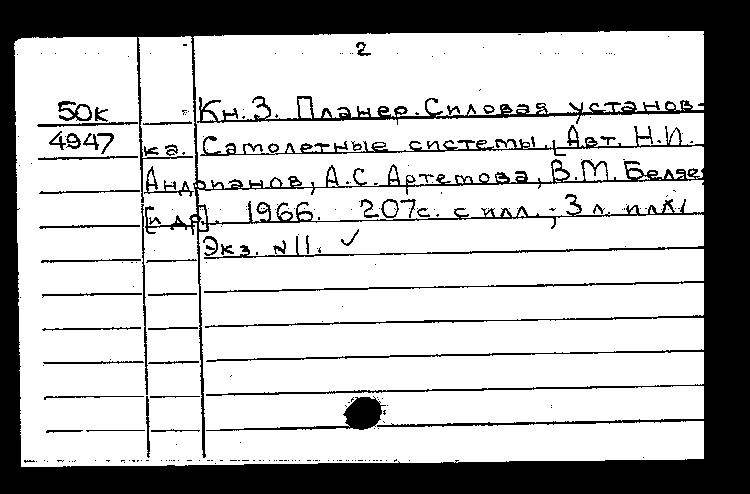 2
50к Кн.3. Планер. Силовая установ-
4947 ка. Самолетные системы. [Авт. Н.И.
Андрианов, А.С. Артемова, В.М. Беляев
[и др]. 1966. 207с. с илл.; 3 л. илл
Экз. N11. ✓